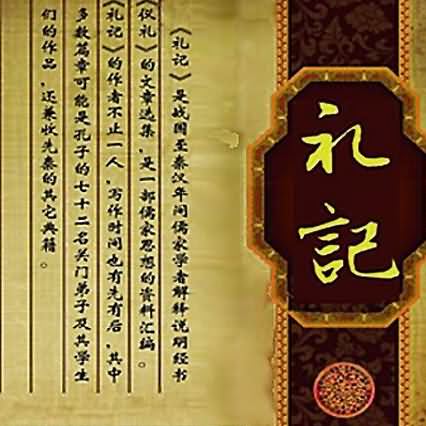 礼記
《礼记》是战国至秦汉年间儒家学者解释说明经书
《仪礼》的文章选集，是一部儒家思想的资料汇编。
《礼记》的作者不止一人，写作时间也有先有后，其中
多数篇章可能是孔子的七十二名关门弟子及其学生
们的作品，还兼收先秦的其它典籍。